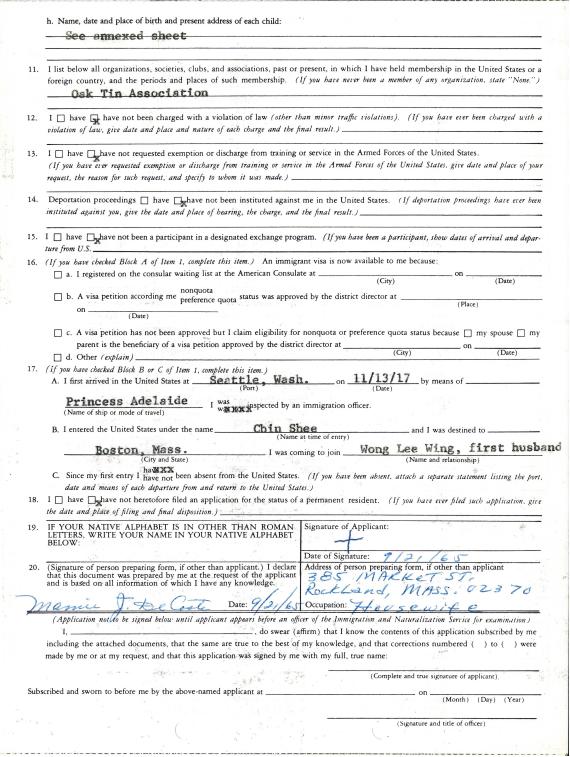 h. Name, date and place of birth and present address of each child:
See annexed sheet
11. I list below all organizations, societies, clubs, and associations, past or present, in which I have held membership in the United States or a
foreign country, and the periods and places of such membership. (If you have never been a member of any organization, state "None.")
Oak Tin Association
12. I ☐ have ☒ have not been charged with a violation of law (other than minor traffic violations). (If you have ever been charged with a
violation of law, give date and place and nature of each charge and the final result.)
13. I ☐ have ☒ have not requested exemption or discharge from training or service in the Armed Forces of the United States.
(If you have ever requested exemption or discharge from training or service in the Armed Forces of the United States, give date and place of your
request, the reason for such request, and specify to whom it was made.)
14. Deportation proceedings ☐ have ☒ have not been instituted against me in the United States. (If deportation proceedings have ever been
instituted against you, give the date and place of hearing, the charge, and the final result.)
15. I ☐ have ☒ have not been a participant in a designated exchange program. (If you have been a participant, show dates of arrival and depar-
ture from U.S.
16. (If you have checked Block A of Item 1, complete this item.) An immigrant visa is now available to me because:
☐ a. I registered on the consular waiting list at the American Consulate at on
(City) (Date)
☐ b. A visa petition according me nonquota
preference quota status was approved by the district director at
(Place)
on
(Date)
☐ c. A visa petition has not been approved but I claim eligibility for nonquota or preference quota status because ☐ my spouse ☐ my
parent is the beneficiary of a visa petition approved by the district director at on
(City) (Date)
☐ d. Other (explain)
17. (If you have checked Block B or C of Item 1, complete this item.)
A. I first arrived in the United States at Seattle, Wash. on 11/13/17 by means of
(Port) (Date)
Princess Adelaide I was
inspected by an immigration officer.
(Name of ship or mode of travel)
B. I entered the United States under the name Chin Shee and I was destined to
(Name at time of entry)
Boston, Mass. I was coming to join Wong Lee Wing, first husband
(City and State) (Name and relationship)
C. Since my first entry I have not been absent from the United States. (If you have been absent, attach a separate statement listing the port,
date and means of each departure from and return to the United States.)
18. I ☐ have ☒ have not heretofore filed an application for the status of a permanent resident. (If you have ever filed such application, give
the date and place of filing and final disposition.)
19. IF YOUR NATIVE ALPHABET IS IN OTHER THAN ROMAN
LETTERS, WRITE YOUR NAME IN YOUR NATIVE ALPHABET
BELOW:
Signature of Applicant:
+
Date of Signature: 9/21/65
20. (Signature of person preparing form, if other than applicant.) I declare
that this document was prepared by me at the request of the applicant
and is based on all information of which I have any knowledge.
Mamie J. DeCosta Date: 9/21/65
Address of person preparing form, if other than applicant
385 MARKET ST.
Rockland, MASS. 02370
Occupation: Housewife
(Application not to be signed below until applicant appears before an officer of the Immigration and Naturalization Service for examination)
I, , do swear (affirm) that I know the contents of this application subscribed by me
including the attached documents, that the same are true to the best of my knowledge, and that corrections numbered ( ) to ( ) were
made by me or at my request, and that this application was signed by me with my full, true name:
(Complete and true signature of applicant)
Subscribed and sworn to before me by the above-named applicant at on
(Month) (Day) (Year)
(Signature and title of officer)